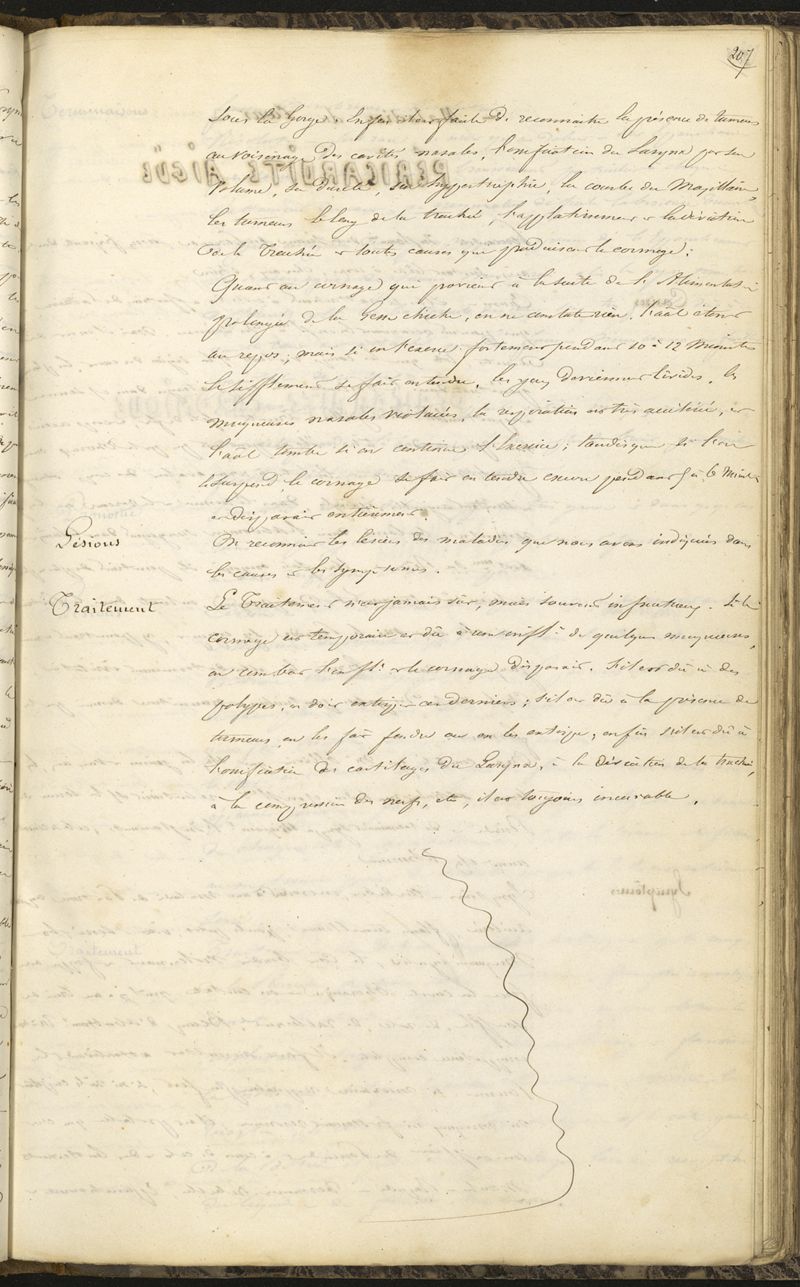 207
sous la Gorge. Enfin il est facile de reconnaitre la présence de tumeurs
au voisinage des cavités nasales, l'ossification du Larynx par son
volume, sa dureté, son hypertrophie, la courbe du Maxillaire,
les tumeurs le long de la trachée, l'applatissement et la déviation
de la Trachée et toutes causes qui produisent le cornage.
Quant au cornage qui provient à la suite de l'Alimentation
prolongée de la Gesse chiche, on ne constate rien, l'aal étant
au repos; mais si on l'exerce fortement pendant 10 à 12 Minutes
le sifflement se fait entendre, les yeux deviennent livides, les
muqueuses nasales violacées, la respiration est très accélérée, et
l'aal tombe si on continue l'Exercice; tandis que si l'on
suspend le cornage se fait entendre encore pendant 5 à 6 Minutes
et disparait entièrement.
Lésions
On reconnait les lésions des maladies que nous avons indiquées dans
les causes et les symptomes.
Traitement
Le Traitement n'est jamais sûr, mais souvent infructueux. Si le
cornage est temporaire et dû à une inflt. de quelques muqueuses,
on combat l'inflt. et le cornage disparait. S'il est dû à des
polypes, on doit extirper ces derniers; s'il est dû à la présence de
tumeurs on les fait fondre ou on les extirpe; enfin s'il est dû à
l'ossification des cartilages du Larynx, à la déviation de la trachée,
à la compression des nerfs, etc, il est toujours incurable.